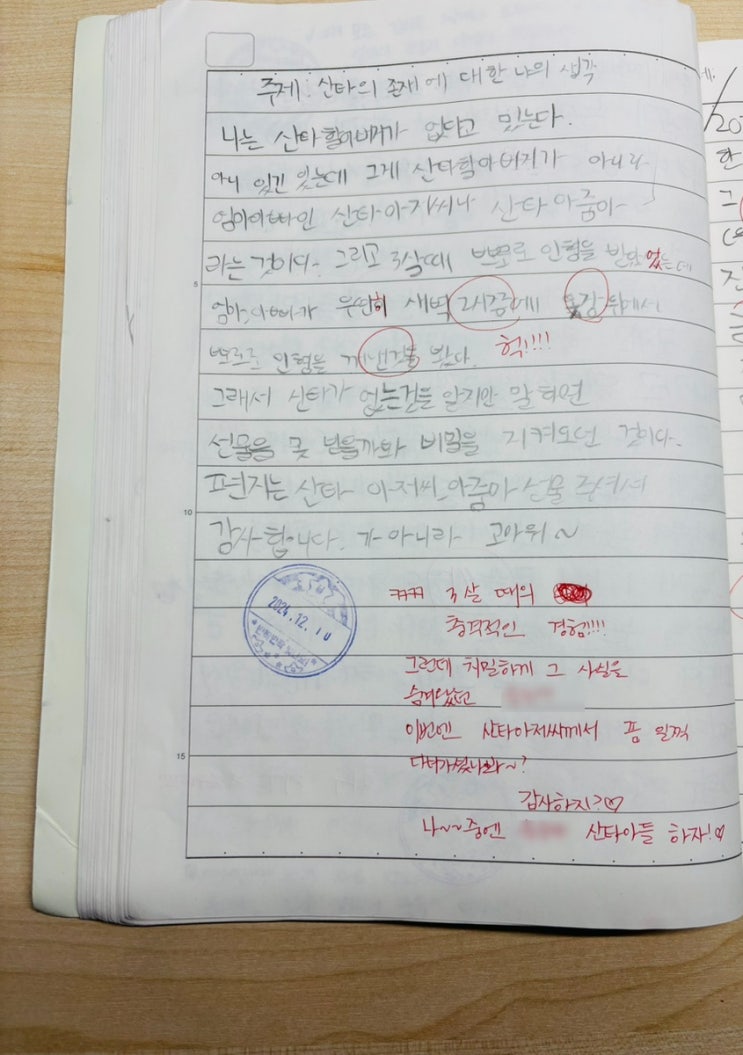 주제: 산타의 존재에 대한 나의 생각
나는 산타할아버지가 없다고 믿는다.
아니 있긴 있는데 그게 산타할아버지가 아니라
엄마아빠인 산타아저씨나 산타아줌마
라는 것이다. 그리고 3살때 뽀로로 인형을 받았었는데
5
엄마, 아빠가 우연히 새벽 2시쯤에 뒤에서
뽀로로 인형을 꺼낸것을 봤다. 헉!!!!
그래서 산타가 없는건을 알지만 말하면
선물을 못 받을까봐 비밀을 지켜오던 것이다.
편지는 산타 아저씨, 아줌마 선물 주셔서
10
감사합니다. 가 아니라 고마워~
ㅋㅋㅋ 3살 때의
충격적인 경험!!!!
2024. 12. 10
그런데 치밀하게 그 사실을
숨겨왔던
이번엔 산타아저씨께서 좀 일찍
15
다녀가셨나봐~?
감사하지?♡
나~~중엔 산타아들 하자!♡